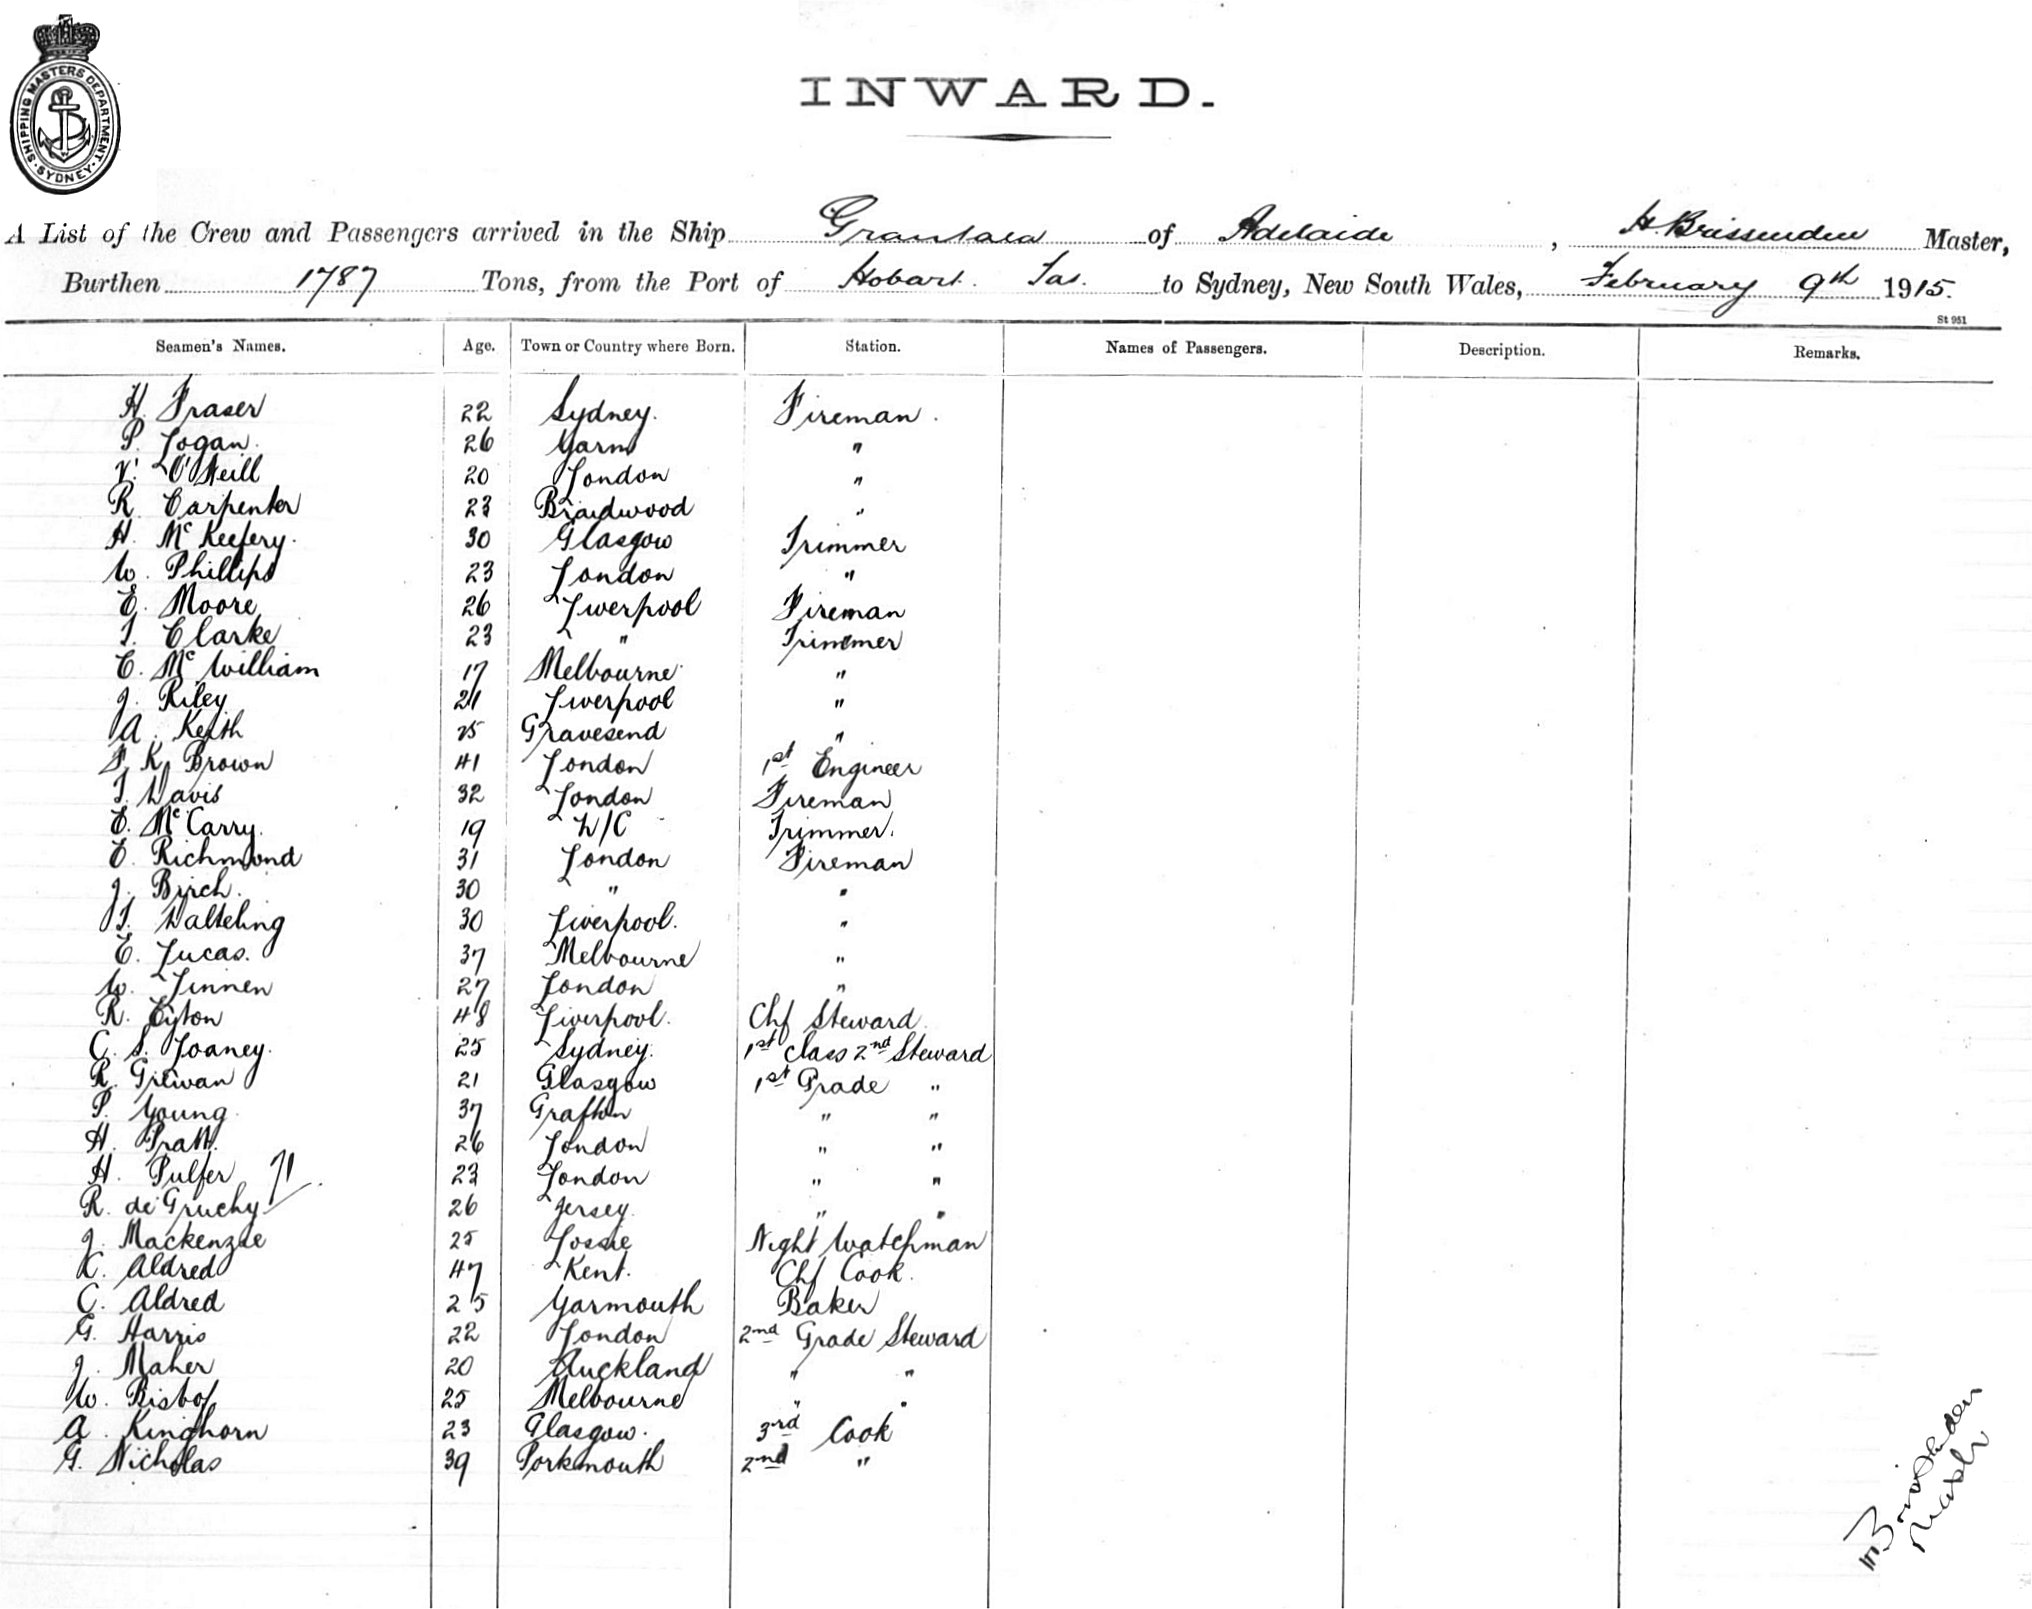 SHIPPING MASTERS DEPARTMENT · SYDNEY ·
INWARD.
A List of the Crew and Passengers arrived in the Ship Grantala of Adelaide, H. Brissenden Master,
Burthen 1787 Tons, from the Port of Hobart. Tas. to Sydney, New South Wales, February 9th 1915.
St 951
Seamen's Names. Age. Town or Country where Born. Station. Names of Passengers. Description. Remarks.
H. Fraser 22 Sydney. Fireman.
P. Logan. 26 Yarm "
V. O'Neill 20 London "
R. Carpenter 23 Braidwood "
H. McKeefery. 30 Glasgow Trimmer
W. Phillips 23 London "
E. Moore 26 Liverpool Fireman
T. Clarke 23 " Trimmer
C. McWilliam 17 Melbourne "
J. Riley 21 Liverpool "
A. Keith 25 Gravesend "
F. K. Brown 41 London 1st Engineer
T. Davis 32 London Fireman
E. McCarry. 19 N/C Trimmer.
E. Richmond 31 London Fireman
J. Birch. 30 " "
T. 30 Liverpool. "
E. Lucas. 37 Melbourne "
W. Linnen 27 London "
R. Eyton 48 Liverpool. Chf Steward
C. S. Loaney. 25 Sydney. 1st Class 2nd Steward
R. Girvan 21 Glasgow 1st Grade "
P. Young. 37 Grafton " "
H. Pratt. 26 London " "
H. Pulfer 23 London " "
R. de Gruchy 26 Jersey. " "
J. Mackenzie 25 Lossie Night Watchman
K. Aldred 47 Kent. Chf Cook.
C. Aldred 25 Yarmouth Baker
G. Harris 22 London 2nd Grade Steward
J. Maher 20 Auckland " "
W. Bishop 25 Melbourne " "
A. Kinghorn 23 Glasgow. 3rd Cook
G. Nicholas 39 Portsmouth 2nd "
H Brissenden
Master